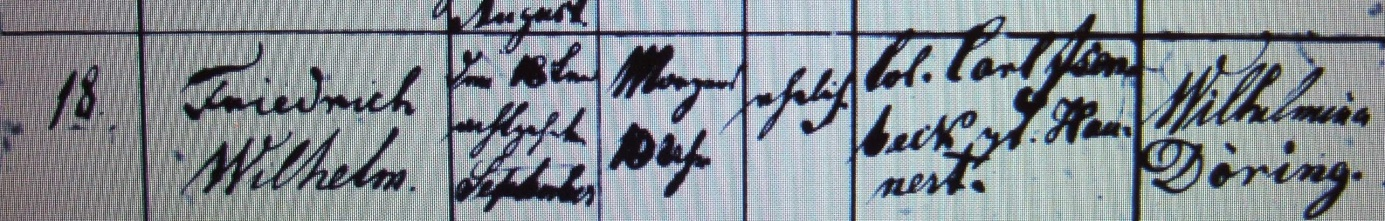 August.
18.
Friedrich
Wilhelm.
Den 18ten
achtzehnten
September
Morgens
10 Uhr
ehelich
Col. Carl Isen-
beck zu Hau-
nert.
Wilhelmina
Döring.